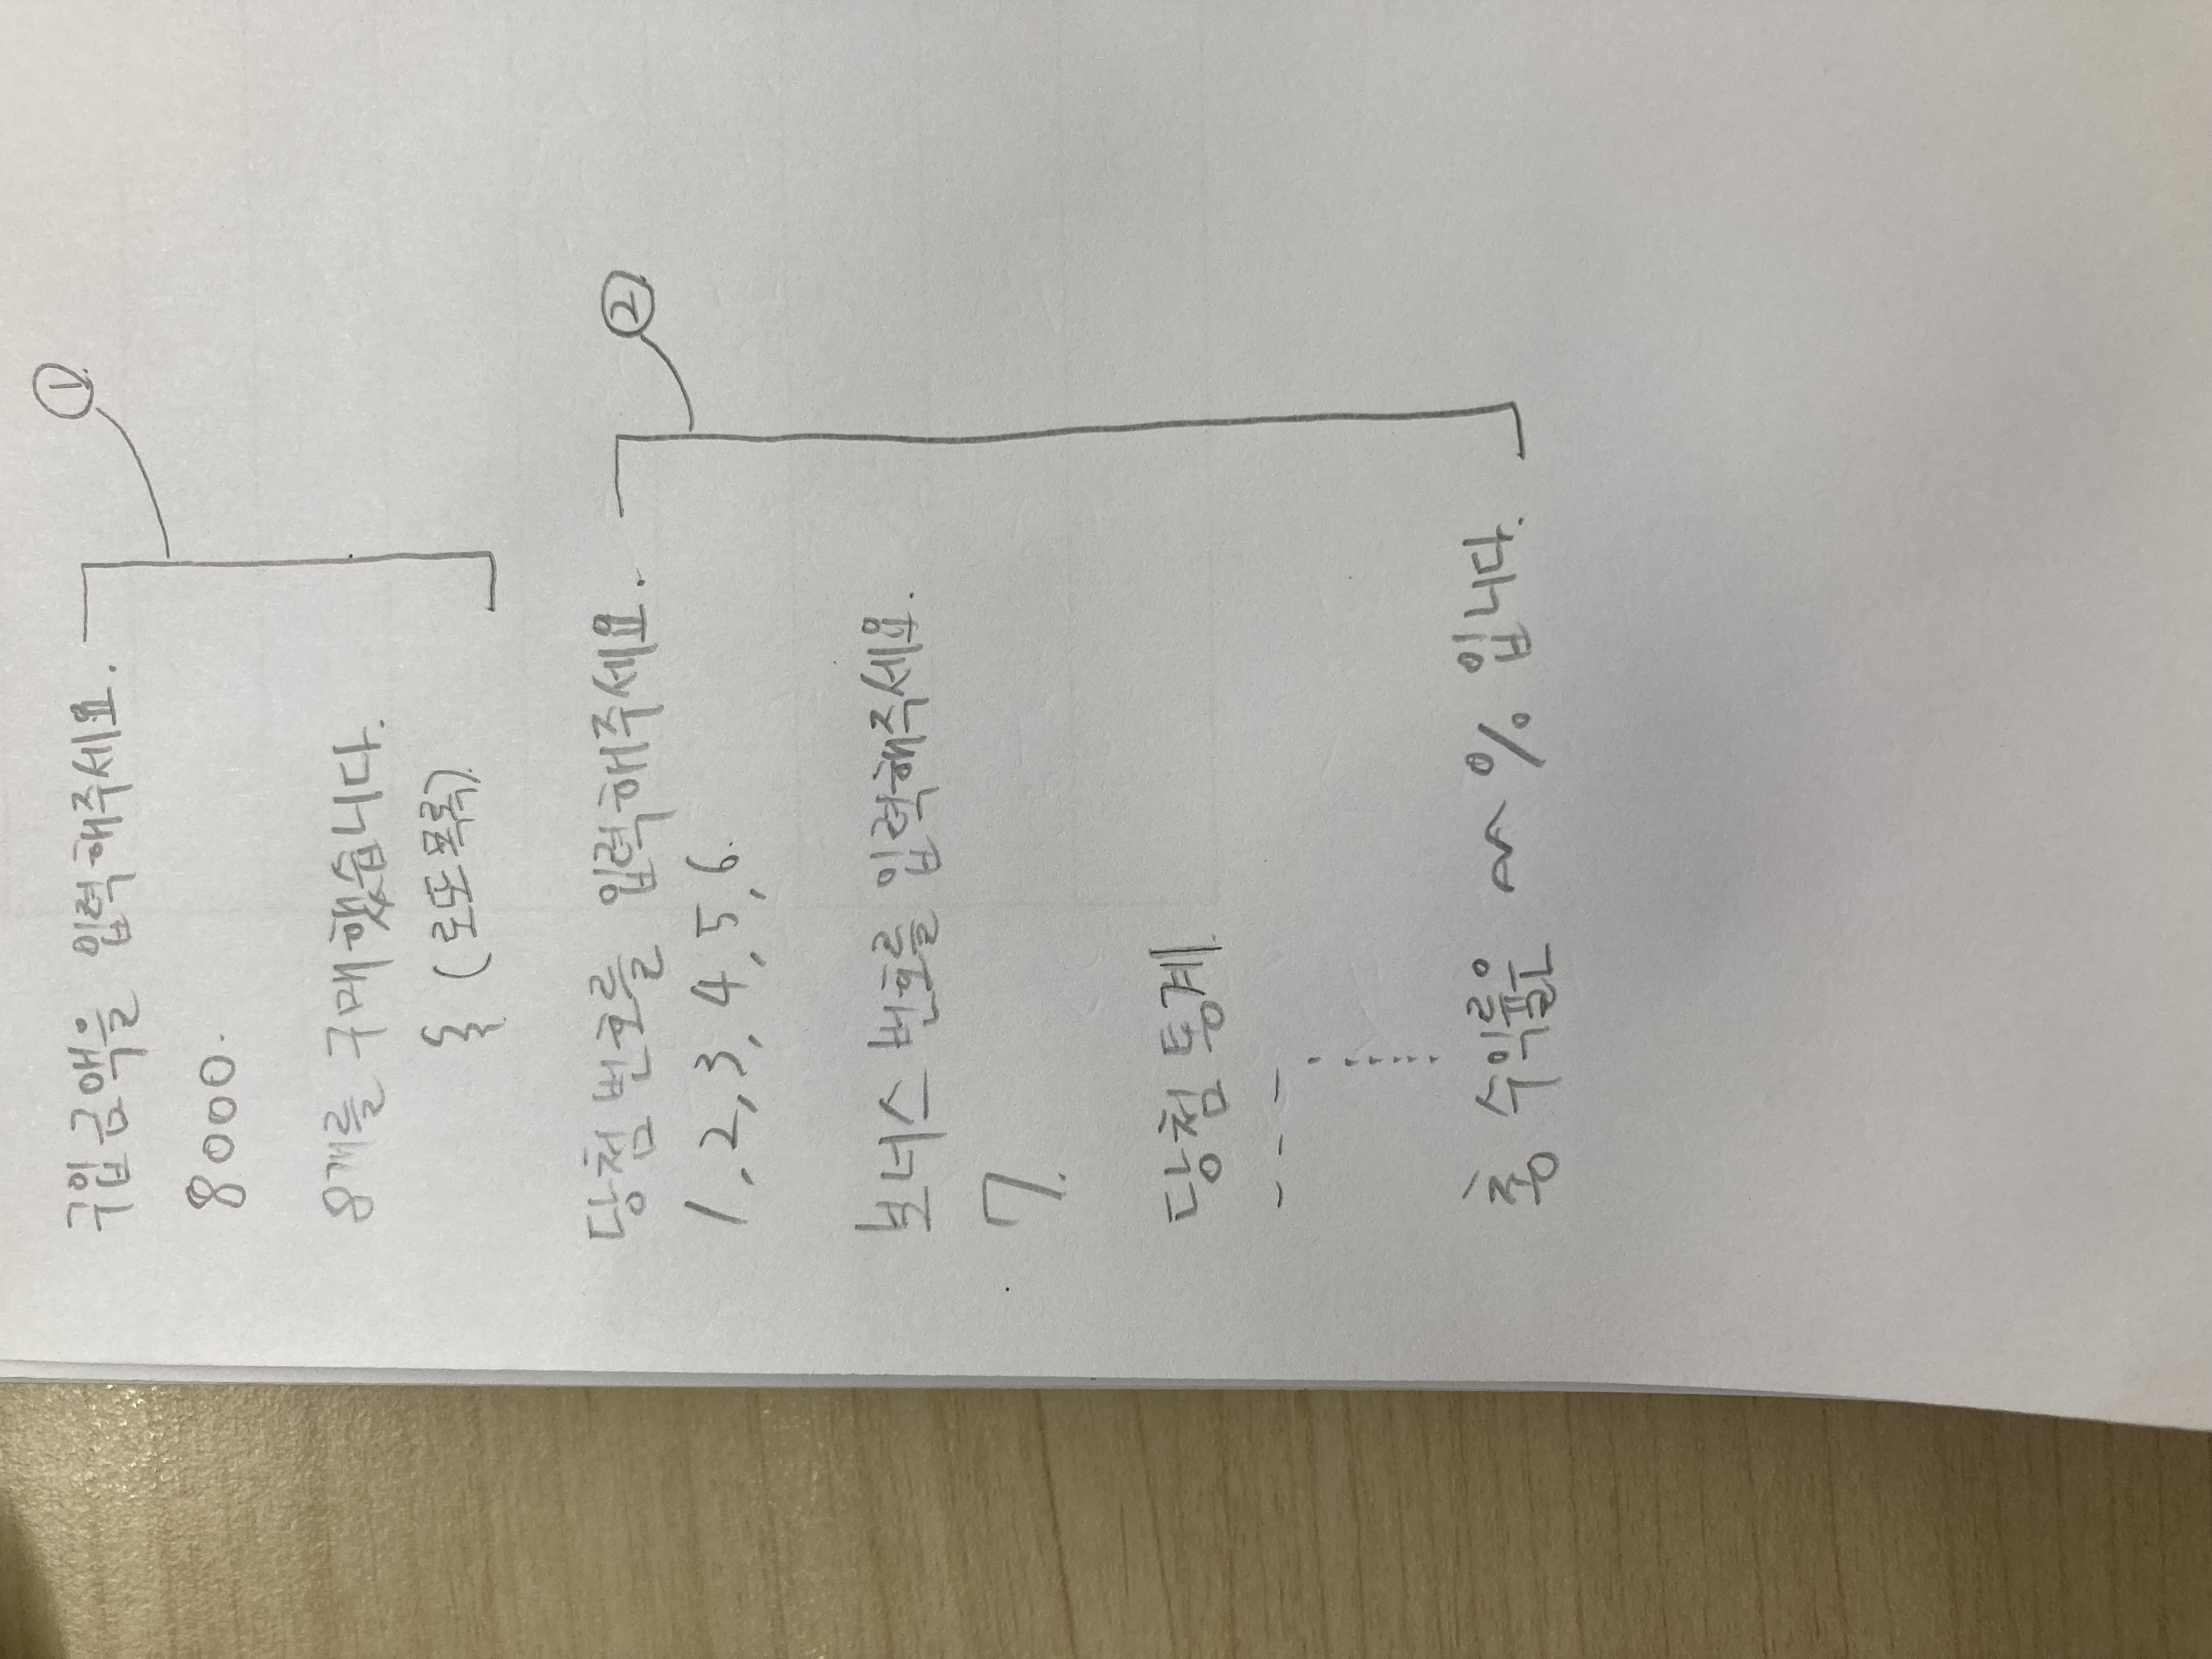 ①
구입금액을 입력해주세요.
8000.
8개를 구매했습니다.
(로또목록)
②
당첨 번호를 입력해주세요.
1, 2, 3, 4, 5, 6.
보너스 번호를 입력해주세요.
7.
당첨 통계.
- - -
총 수익률은 ~ % 입니다.